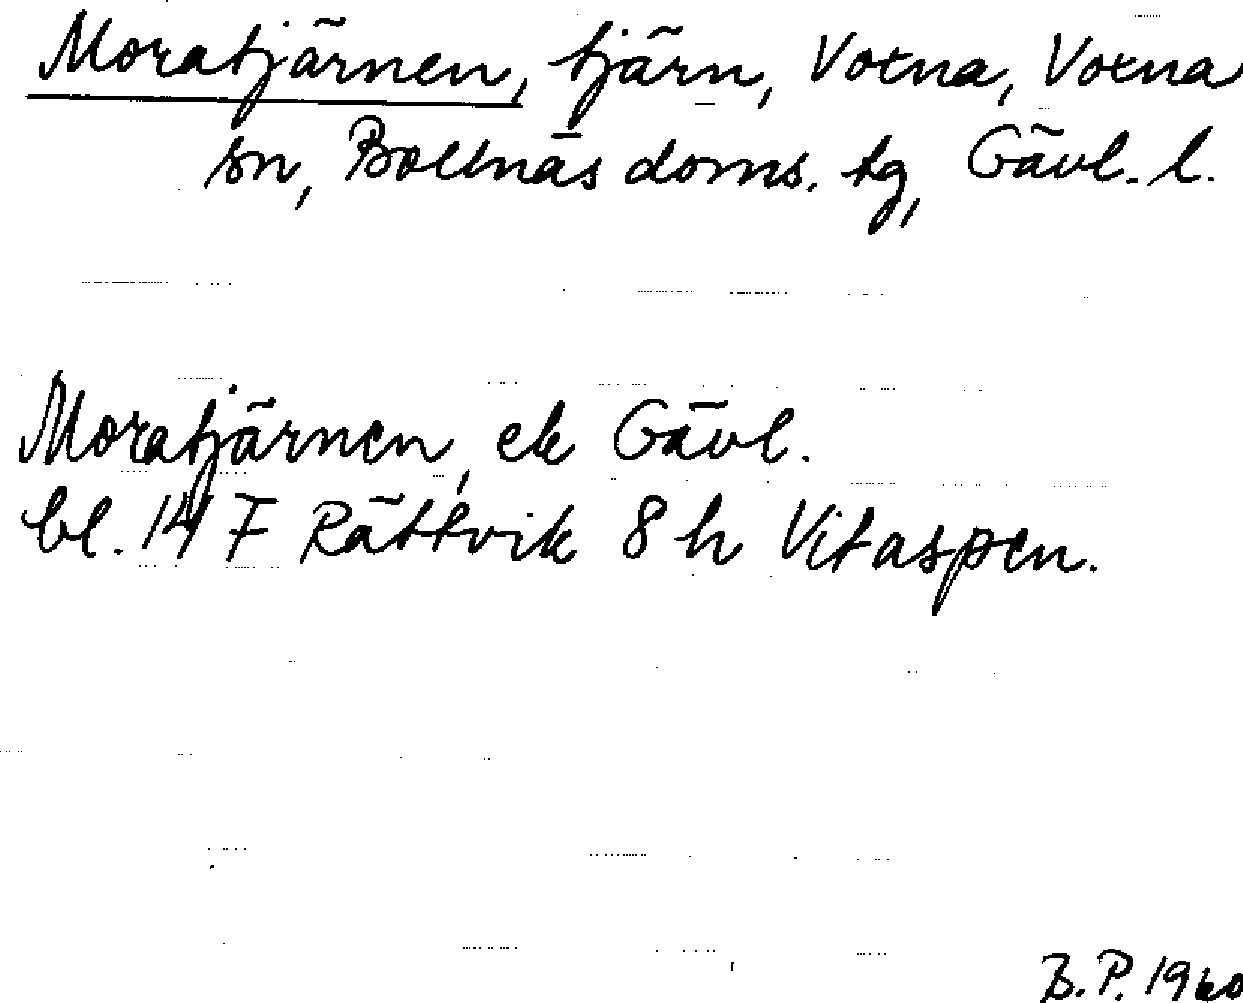 Moratjärnen, tjärn, Voxna, Voxna
sn, Bollnäs doms. tg, Gävl. l.
Moratjärnen, ek Gävl.
bl. 14 F Rättvik 8 h Vitaspen.
B.P. 1960